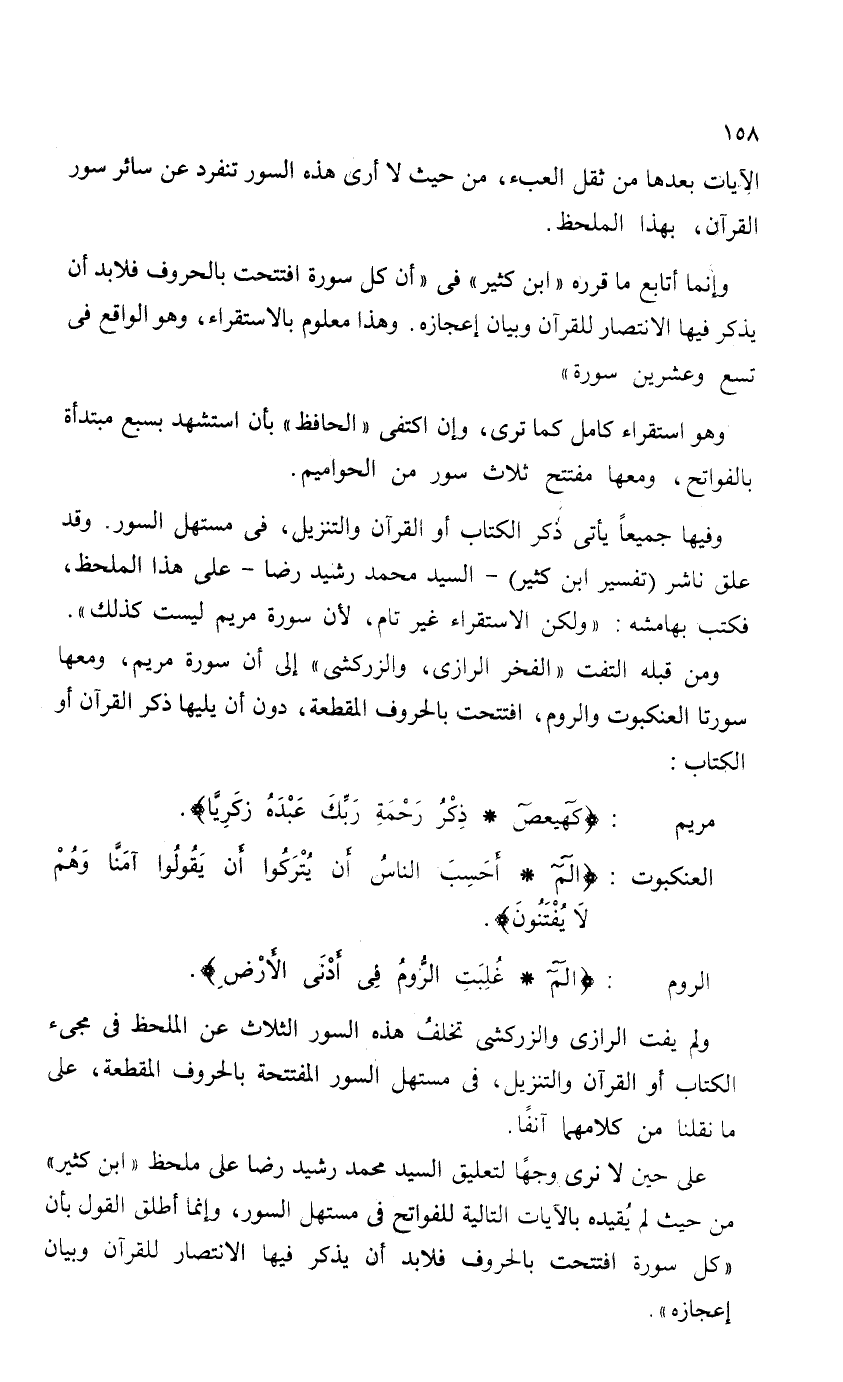 ١٥٨
الآيات بعدها من ثقل العبء، من حيث لا أرى هذه السور تنفرد عن سائر سور
القرآن، بهذا الملحظ.
وإنما أتابع ما قرره «ابن كثير» فى «أن كل سورة افتتحت بالحروف فلابد أن
يذكر فيها الانتصار للقرآن وبيان إعجازه. وهذا معلوم بالاستقراء، وهو الواقع فى
تسع وعشرين سورة»
وهو استقراء كامل كما ترى، وإن اكتفى «الحافظ» بأن استشهد بسبع مبتدأة
بالفواتح، ومعها مفتتح ثلاث سور من الحواميم.
وفيها جميعاً يأتى ذُكر الكتاب أو القرآن والتنزيل، فى مستهل السور. وقد
علق ناشر (تفسير ابن كثير) - السيد محمد رشيد رضا - على هذا الملحظ،
فكتب بهامشه : «ولكن الاستقراء غير تام، لأن سورة مريم ليست كذلك».
ومن قبله التفت «الفخر الرازى، والزركشى» إلى أن سورة مريم، ومعها
سورتا العنكبوت والروم، افتتحت بالحروف المقطعة، دون أن يليها ذكر القرآن أو
الكتاب :
مريم : ﴿كٓهيعصٓ * ذِكْرُ رَحْمَةِ رَبِّكَ عَبْدَهُ زكَرِيَّا﴾.
العنكبوت : ﴿الٓمٓ * أَحَسِبَ الناسُ أَن يُتْرَكُوا أَن يَقُولُوا آمَنَّا وَهُمْ
لَا يُفْتَنُونَ﴾.
الروم : ﴿الٓمٓ * غُلِبَتِ الرُّومُ فِى أَدْنَى الأَرْضِ﴾.
ولم يفت الرازى والزركشى تخلفُ هذه السور الثلاث عن الملحظ فى مجىء
الكتاب أو القرآن والتنزيل، فى مستهل السور المفتتحة بالحروف المقطعة، على
ما نقلنا من كلامهما آنفًا.
على حين لا نرى وجهًا لتعليق السيد محمد رشيد رضا على ملحظ «ابن كثير»
من حيث لم يُقيده بالآيات التالية للفواتح فى مستهل السور، وإنما أطلق القول بأن
«كل سورة افتتحت بالحروف فلابد أن يذكر فيها الانتصار للقرآن وبيان
إعجازه».